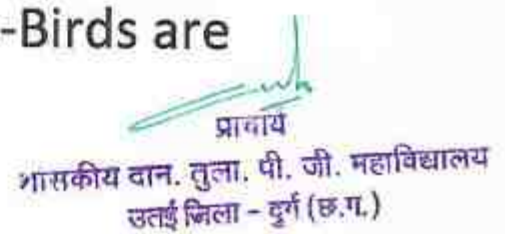 -Birds are
प्राचार्य
शासकीय दान. तुला. पी. जी. महाविद्यालय
उतई जिला - दुर्ग (छ.ग.)